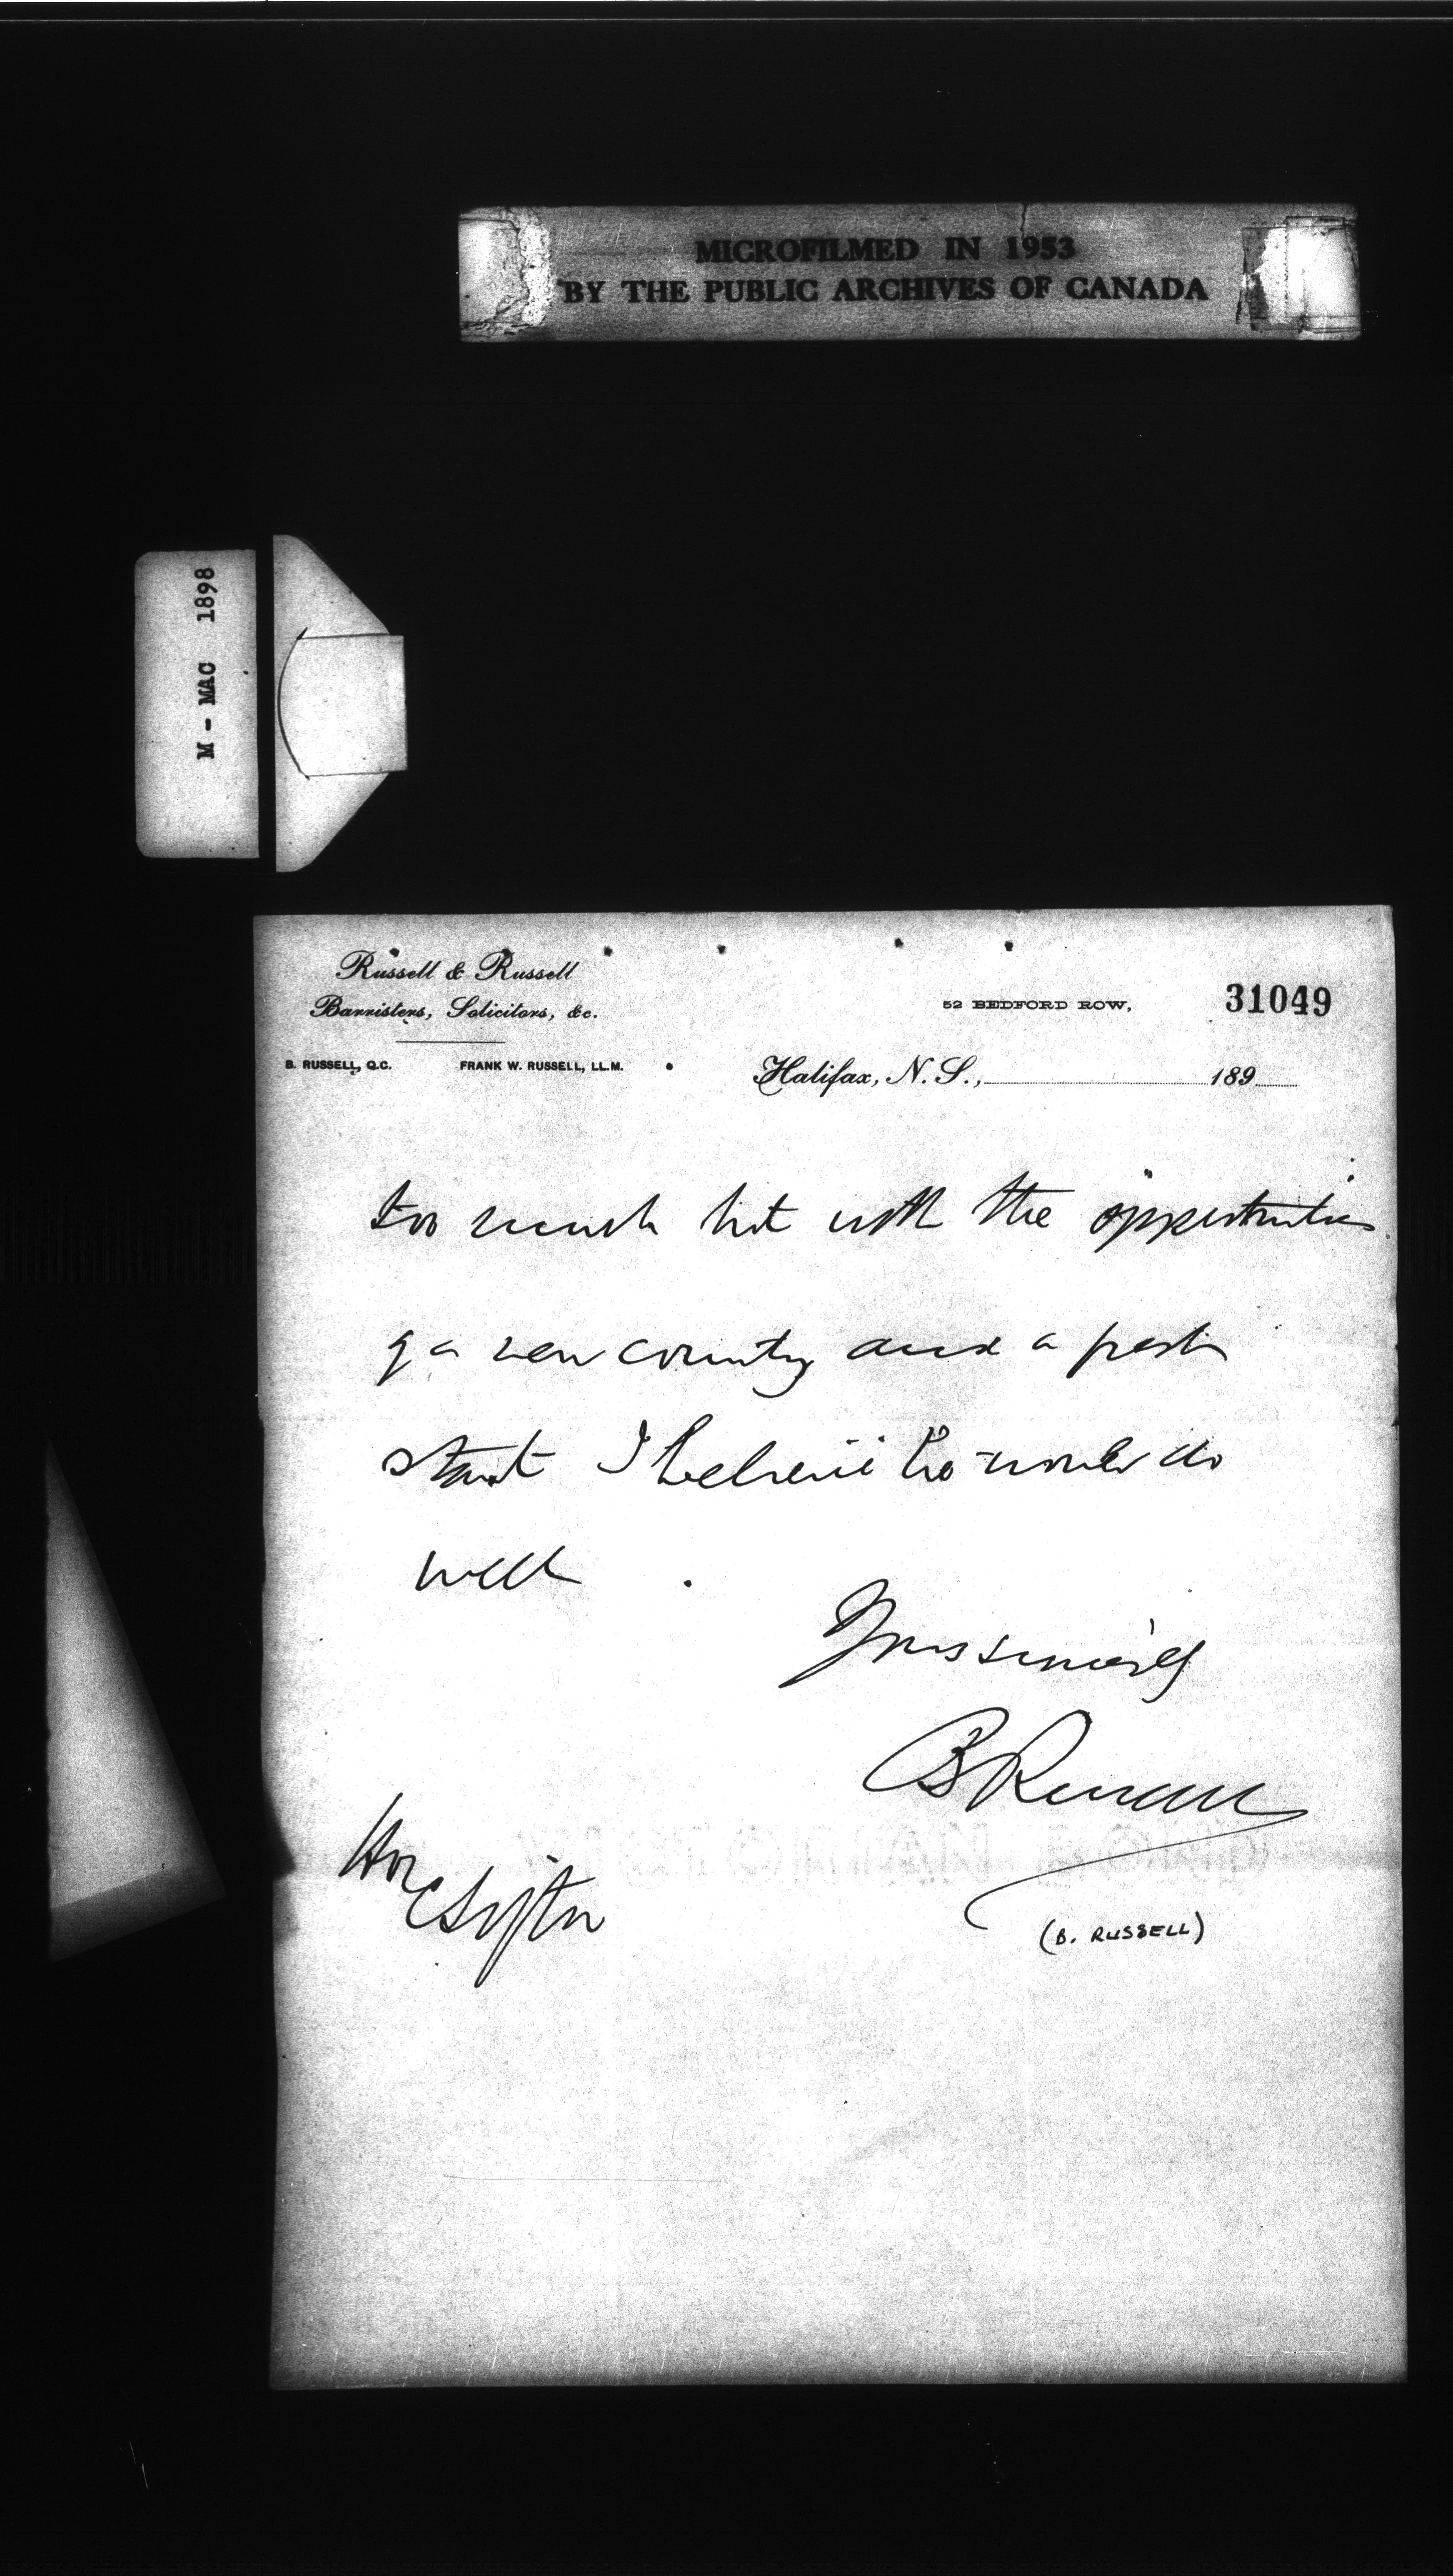 MICROFILMED IN 1953
BY THE PUBLIC ARCHIVES OF CANADA
M - MAC 1898
Russell & Russell
Barristers, Solicitors, &c.
52 BEDFORD ROW,
31049
B. RUSSELL, Q.C. FRANK W. RUSSELL, LL.M.
Halifax, N. S., 189
too much but with the opportunities
of a new country and a fresh
start I believe he would do
well.
Yours sincerely
B Russell
Hon
C Sifton
(B. RUSSELL)